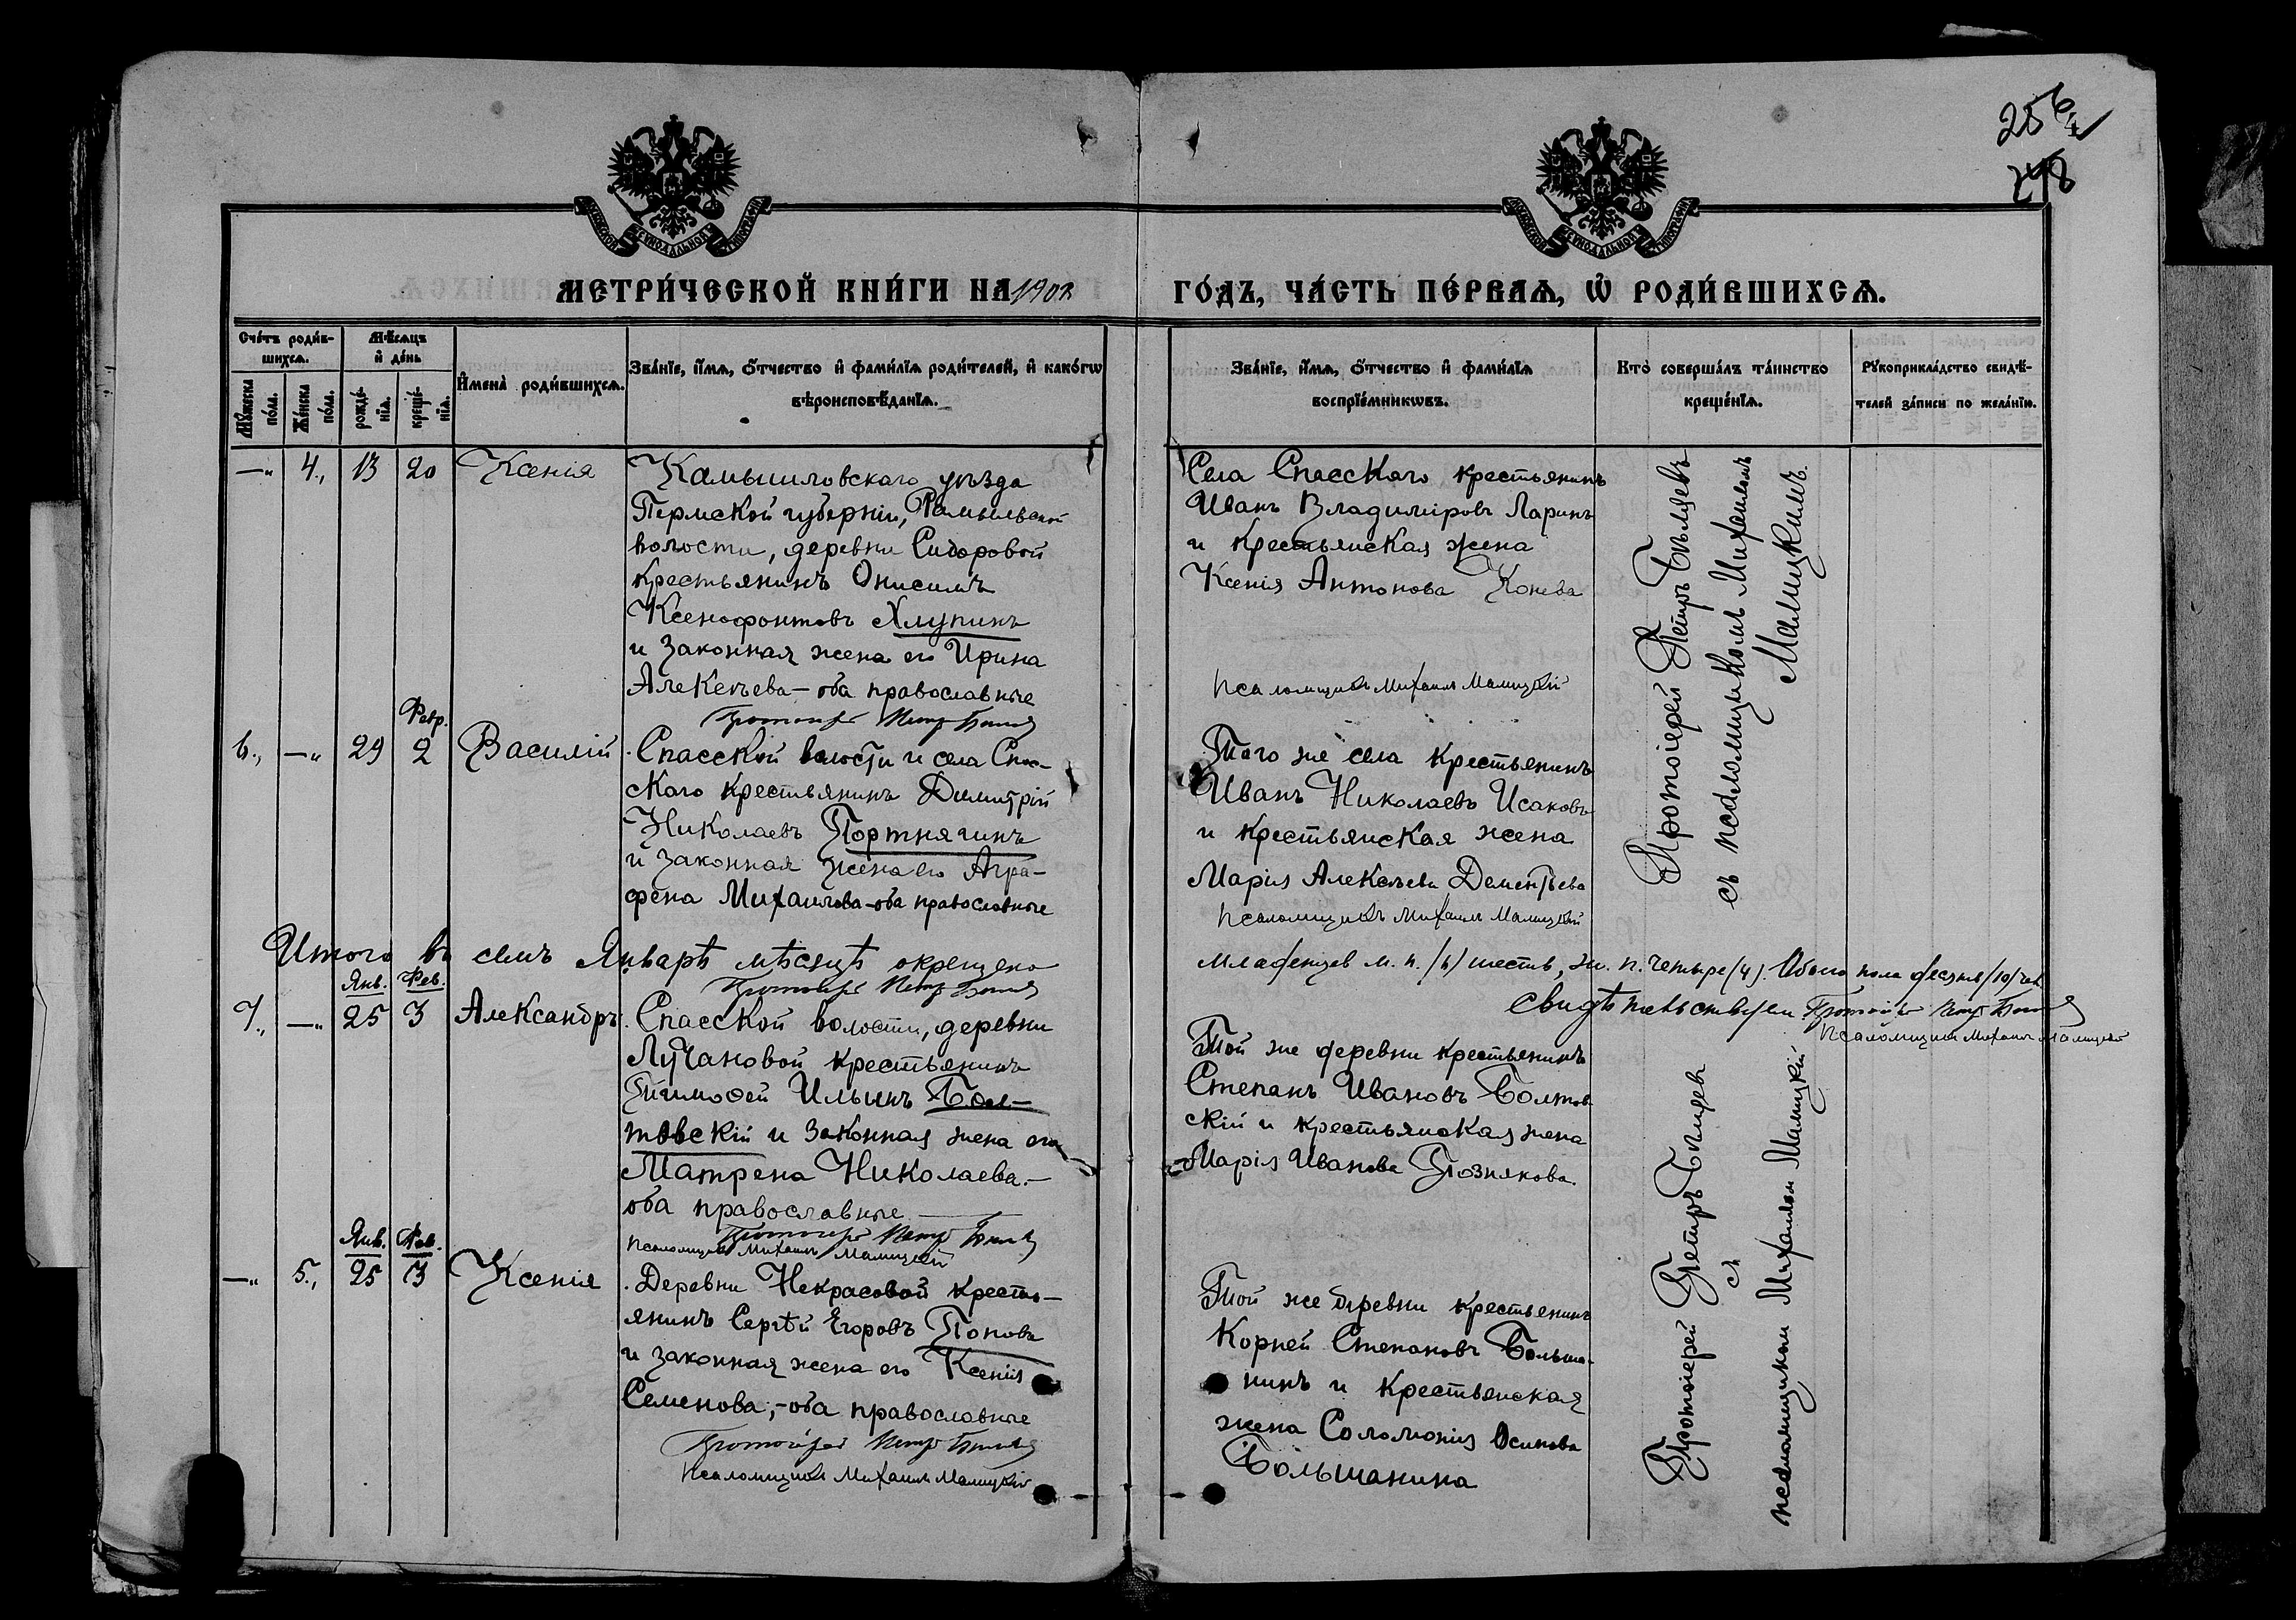 256
248
МОСКОВСКОЙ СѴНОДАЛЬНОЙ ТИПОГРАФІИ
МОСКОВСКОЙ СѴНОДАЛЬНОЙ ТИПОГРАФІИ
МЕТРИ́ЧЕСКОЙ КНИ́ГИ НА 1902 ГО́ДЪ, ЧА́СТЬ ПЕ́РВАѦ, Ѡ҆ РОДИ́ВШИХСѦ.
Сче́тъ роди́в-
шихсѧ.
Мѣ́сѧцъ
и҆ де́нь
Мꙋ́жеска
по́ла.
Же́нска
по́ла.
рожде́-
нїѧ.
креще́-
нїѧ.
И҆мена̀ роди́вшихсѧ.
Зва́нїе, и҆́мѧ, ѻ҆́тчество и҆ фами́лїѧ роди́телей, и҆ како́гѡ
вѣроисповѣ́данїѧ.
Зва́нїе, и҆́мѧ, ѻ҆́тчество и҆ фами́лїѧ
воспрїе́мникѡвъ.
Кто̀ соверша́лъ та́инство
креще́нїѧ.
Рꙋкоприкла́дство свидѣ́-
телей за́писи по жела́нїю.
—„ 4., 13 20 Ксенія
Камышловскаго уѣзда
Пермской губерніи,
волости, деревни Сидоровой
крестьянинъ Онисимъ
Ксенофонтовъ Хлупинъ
и законная жена его Ирина
Алексѣева — оба православные
Протоіерей Петръ Бѣлцевъ
Села Спасскаго крестьянинъ
Иванъ Владиміровъ Ларинъ
и крестьянская жена
Ксенія Антонова Конева
Псаломщикъ Михаилъ Малицкій
Протоіерей Петръ
съ псаломщикомъ Михаиломъ
Малицкимъ.
Февр.
6., —„ 29 2 Василій
Спасской волости и села Спас-
скаго крестьянинъ Димитрій
Николаевъ Портнягинъ
и законная жена его Агра-
фена Михаилова - оба православные
Того же села крестьянинъ
Иванъ Николаевъ Исаковъ
и крестьянская жена
Марія Алексѣева Дементьева
Псаломщикъ Михаилъ Малицкій
Итого въ семъ Январѣ мѣсяцѣ окрещено
младенцев м. п. /6/ шесть, ж. п. четыре /4/. Обоего пола десять /10/ чел.
Протоіерей Петръ
свидѣтельствуемъ Протоіерей Петръ
Псаломщикъ Михаилъ Малицкій
Янв. Фев.
7., —„ 25 3 Александръ
Спасской волости, деревни
Лучановой крестьянинъ
Тимоѳей Ильинъ Бол-
товскій и законная жена его
Матрена Николаева. —
оба православные
Протоіерей Петръ
Псаломщикъ Михаилъ Малицкій
Той же деревни крестьянинъ
Степанъ Ивановъ Болтов-
скій и крестьянская жена
Марія Иванова Познякова.
Протоіерей Петръ
съ
псаломщикомъ Михаиломъ Малицкій
Янв. Фев.
—„ 5., 25 3 Ксенія
Деревни Некрасовой кресть-
янинъ Сергѣй Егоровъ Поповъ
и законная жена его Ксенія
Семенова, - оба православные
Протоіерей Петръ
Псаломщикъ Михаилъ Малицкій
Той же деревни крестьянинъ
Корней Степановъ Больша-
нинъ и крестьянская
жена Соломонія Осипова
Большанина